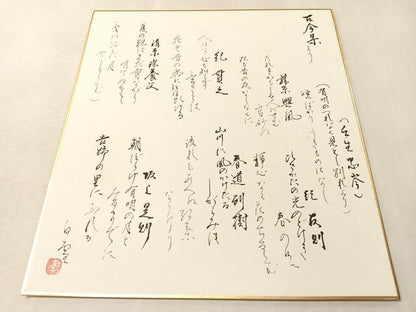 古今集より
(壬生忠岑)
(有明のつれなく見えし別れより
暁ばかりうきものはなし)
紀友則
ひさかたの光のどけき
春の日に
静心なく花のちるらむ
藤原興風
たれをかもしる人にせむ
高砂の
松も昔の友ならなくに
紀貫之
(人はいさ心も知らず
ふるさとは
花ぞ昔の香に匂ひける)
春道列樹
山川に風のかけたる
しがらみは
流れもあへぬ紅葉
なりけり
清原深養父
坂上是則
朝ぼらけ有明の月と
みるまでに
吉野の里にふれる
白雪